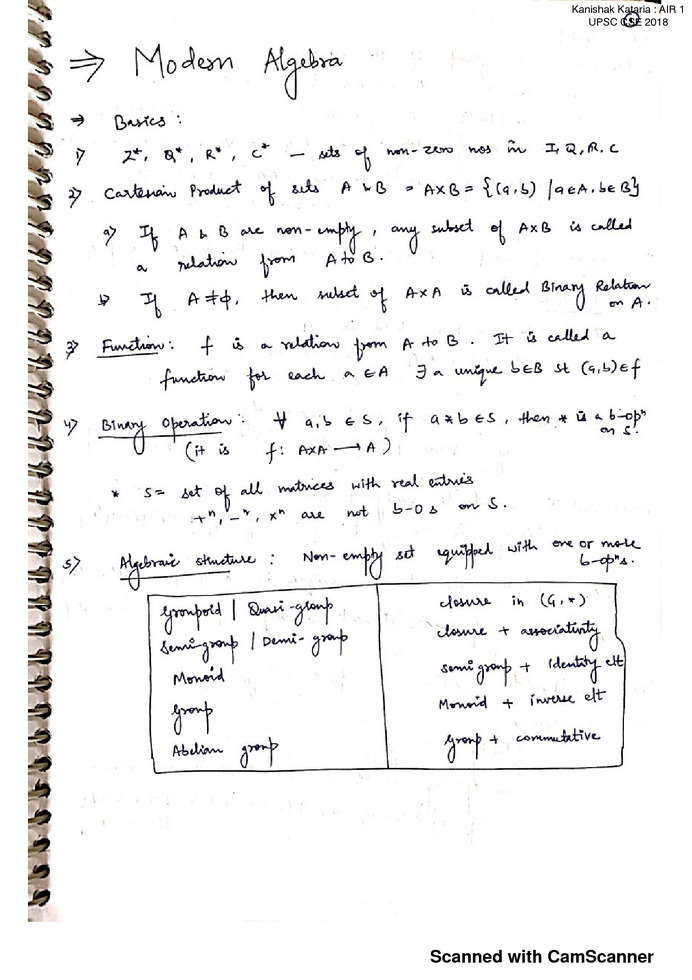 Kanishak Kataria : AIR 1
UPSC CSE 2018
⇒ Modern Algebra
⇒ Basics :
1) Z*, Q*, R*, C* — sets of non-zero nos in I, Q, R, C
2) Cartesian Product of sets A & B = A×B = {(a,b) / a∈A, b∈B}
a) If A & B are non-empty, any subset of A×B is called
a relation from A to B.
b) If A ≠ ϕ, then subset of A×A is called Binary Relation
on A.
3) Function : f is a relation from A to B. It is called a
function for each a ∈ A ∃ a unique b∈B st (a,b)∈f
4) Binary Operation : ∀ a,b ∈ S, if a*b ∈ S, then * is a b-opⁿ
on S.
(it is f: A×A → A)
* S = set of all matrices with real entries
+ⁿ, −ⁿ, ×ⁿ are not b-0s on S.
5) Algebraic structure : Non-empty set equipped with one or more
b-opⁿs.
Groupoid | Quasi-group closure in (G, *)
Semi-group / Demi-group closure + associativity
Monoid semi group + Identity elt
Group Monoid + inverse elt
Abelian group Group + commutative
Scanned with CamScanner